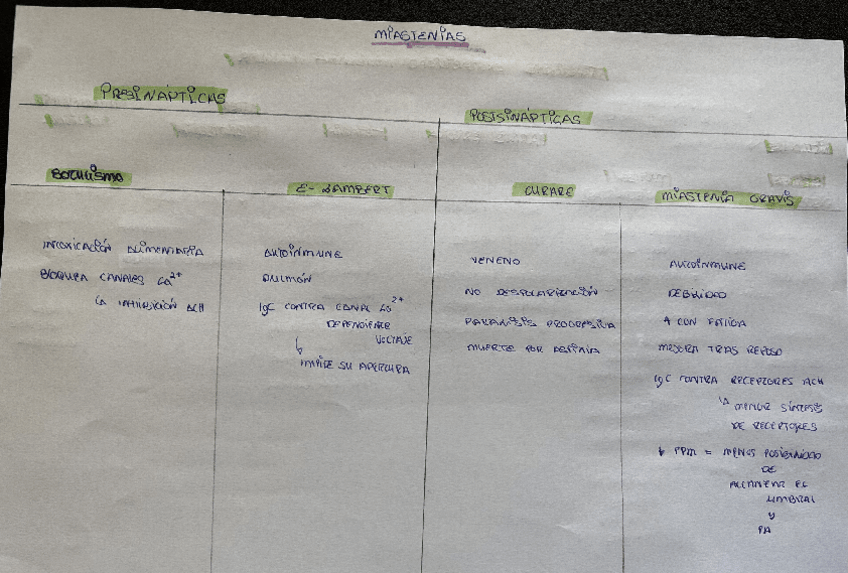 MIASTENIAS
PRESINÁPTICAS
POSTSINÁPTICAS
BOTULISMO
E-LAMBERT
CURARE
MIASTENIA GRAVIS
INTOXICACIÓN ALIMENTARIA
BLOQUEA CANALES Ca²⁺
INHIBICIÓN ACH
AUTOINMUNE
PULMÓN
IgG CONTRA CANAL Ca²⁺
DEPENDIENTE
VOLTAJE
↳ IMPIDE SU APERTURA
VENENO
NO DESPOLARIZACIÓN
PARÁLISIS PROGRESIVA
MUERTE POR ASFIXIA
AUTOINMUNE
DEBILIDAD
↑ CON FATIGA
MEJORA TRAS REPOSO
IgG CONTRA RECEPTORES ACH
↳ MENOR SÍNTESIS
DE RECEPTORES
↓ PPM = MENOS POSIBILIDAD
DE
ALCANZAR EL
UMBRAL
y
PA